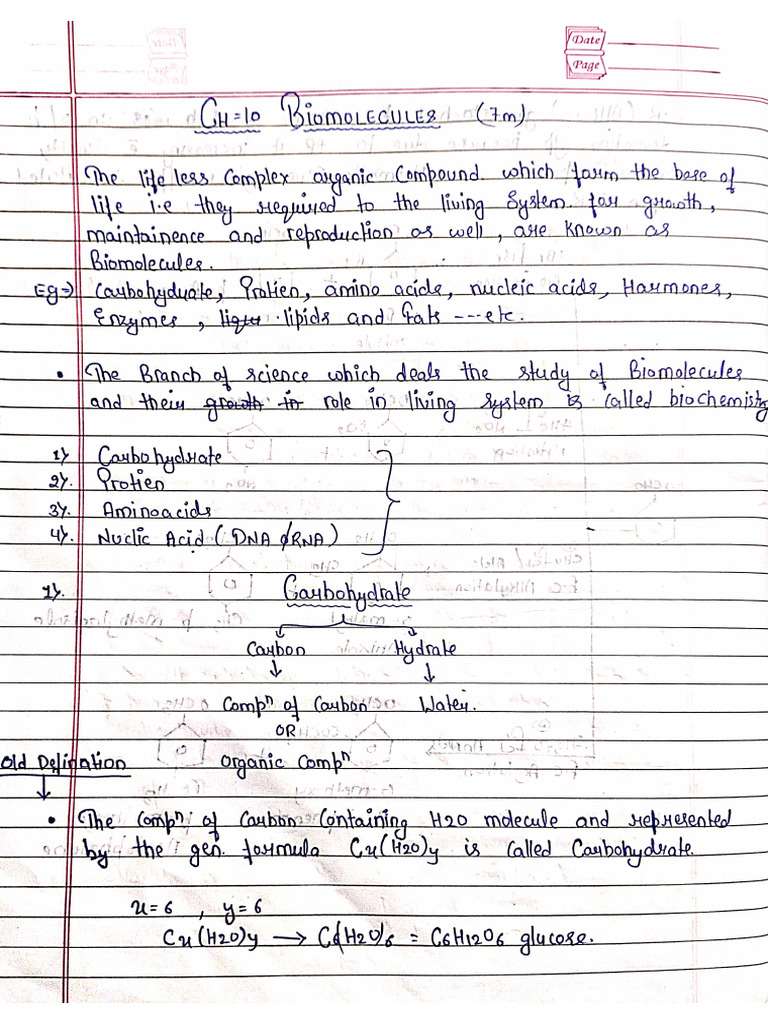 Date
Page
CH=10 BIOMOLECULES (7m)
The life less complex organic Compound which form the base of
life i.e they required to the living System for growth,
maintainence and reproduction as well, are known as
Biomolecules.
Eg⇒ Carbohydrate, Protien, amino acids, nucleic acids, Harmones,
Enzymes, lipids and fats ---etc.
• The Branch of science which deals the study of Biomolecules
and their growth in role in living system is called biochemistry
1). Carbohydrate
2). Protien
3). Aminoacids
4). Nuclic Acid (DNA & RNA)
1). Carbohydrate
Carbon Hydrate
↓ ↓
Compⁿ of Carbon Water.
OR
Old Defination Organic Compⁿ
↓
• The Compⁿ of Carbon Containing H2O molecule and represented
by the gen. formula Cx(H2O)y is called Carbohydrate.
x=6 , y=6
Cx(H2O)y → C6(H2O)6 = C6H12O6 glucose.